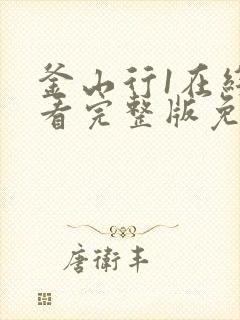 釜山行1在线
看完整版免
唐衛丰